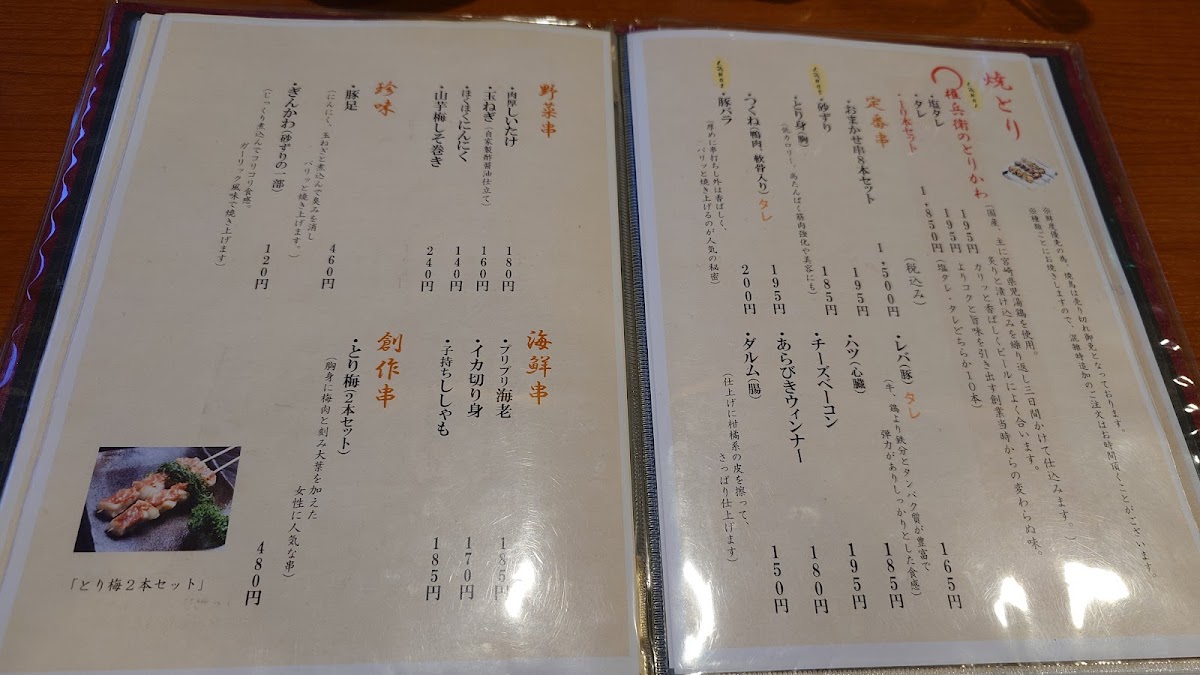 焼とり
※鮮度優先の為、焼鳥は売り切れ御免となっております。
※種類ごとにお焼きしますので、混雑時追加のご注文はお時間頂くことがございます。
権兵衛のとりかわ
(国産、主に宮崎県児湯鶏を使用。
炙りと漬け込みを繰り返し三日間かけて仕込みます。)
・塩タレ 195円 カリッと香ばしくビールによく合います。
・タレ 195円 よりコクと旨味を引き出す創業当時からの変わらぬ味。
・10本セット 1,850円 (塩タレ・タレどちらか10本)
定番串 (税込み)
・おまかせ串8本セット 1,500円
・砂ずり 195円
・とり身(胸) 185円
(低カロリー、高たんぱく筋肉強化や美容にも)
・つくね(鴨肉、軟骨入り) タレ 195円
・豚バラ 200円
(厚めに串打ちし外は香ばしく、
パリッと焼き上げるのが人気の秘密)
・レバ(豚) タレ 165円
(牛、鶏より鉄分とタンパク質が豊富で
弾力がありしっかりとした食感)
・ハツ(心臓) 185円
・チーズベーコン 195円
・あらびきウィンナー 180円
・ダルム(腸) 150円
(仕上げに柑橘系の皮を擦って、
さっぱり仕上げます)
野菜串
・肉厚しいたけ 180円
・玉ねぎ(自家製酢醤油仕立て) 160円
・ほくほくにんにく 140円
・山芋梅しそ巻き 240円
珍味
・豚足 460円
(にんにく、玉ねぎと煮込んで臭みを消し
パリッと焼き上げます。)
・ぎんかわ(砂ずりの一部) 120円
(じっくり煮込んでコリコリ食感。
ガーリック風味で焼き上げます)
海鮮串
・プリプリ海老 185円
・イカ切り身 170円
・子持ちししゃも 185円
創作串
・とり梅(2本セット) 480円
(胸身に梅肉と刻み大葉を加えた
女性に人気な串)
「とり梅2本セット」